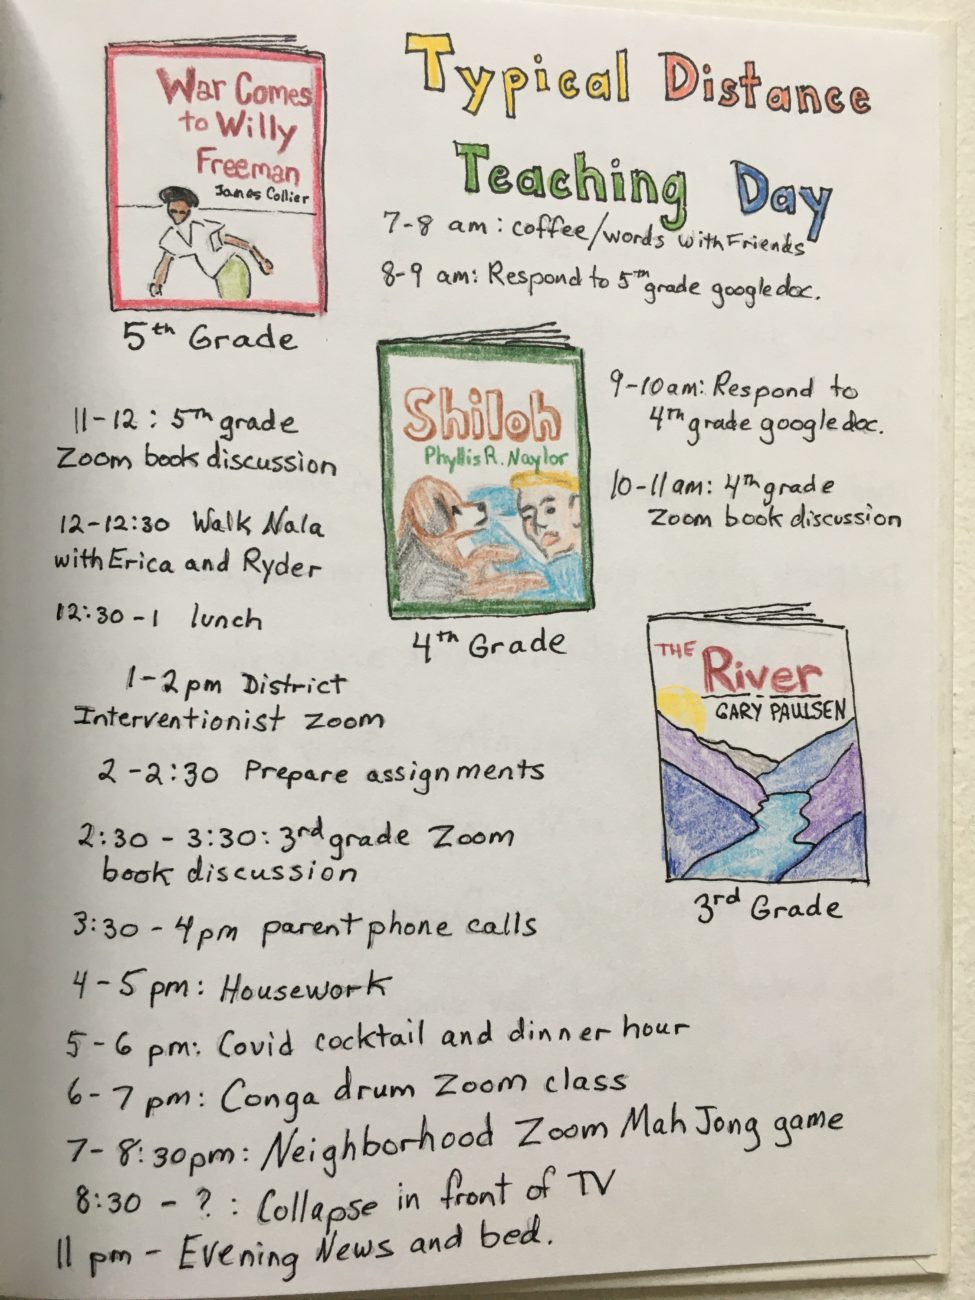 Typical Distance
Teaching Day
War Comes
to Willy
Freeman
James Collier
5th Grade
7-8 am: coffee/words with Friends
8-9 am: Respond to 5th grade google doc.
Shiloh
Phyllis R. Naylor
4th Grade
9-10am: Respond to
4th grade google doc.
10-11am: 4th grade
Zoom book discussion
11-12: 5th grade
Zoom book discussion
12-12:30 Walk Nala
with Erica and Ryder
12:30-1 lunch
1-2pm District
Interventionist Zoom
2-2:30 Prepare assignments
2:30-3:30: 3rd grade Zoom
book discussion
THE River
GARY PAULSEN
3rd Grade
3:30-4pm parent phone calls
4-5pm: Housework
5-6 pm: Covid cocktail and dinner hour
6-7pm: Conga drum Zoom class
7-8:30pm: Neighborhood Zoom Mah Jong game
8:30-?: Collapse in front of TV
11 pm - Evening News and bed.